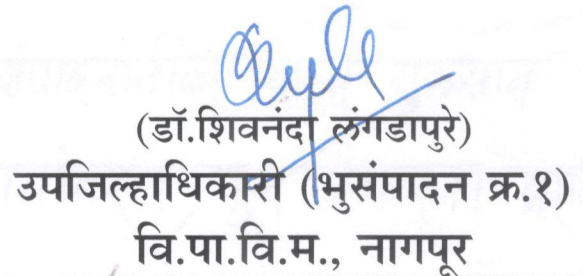 (डॉ.शिवनंदा लंगडापुरे)
उपजिल्हाधिकारी (भुसंपादन क्र.१)
वि.पा.वि.म., नागपूर